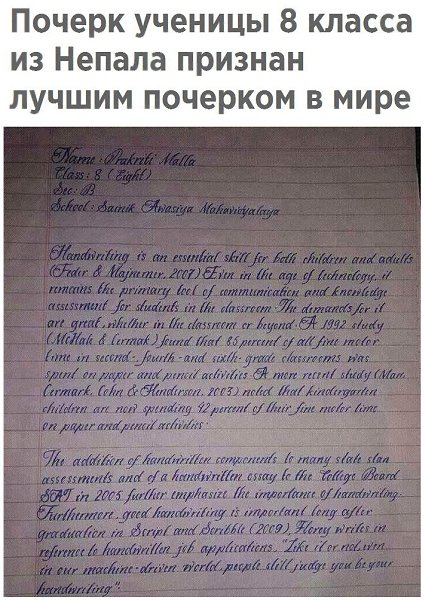 Почерк ученицы 8 класса
из Непала признан
лучшим почерком в мире
Name : Prakriti Malla
Class : 8 ( Eight)
Sec : B
School : Sainik Awasiya Mahavidyalaya
Handwriting is an essential skill for both children and adults
(Feder & Majnemer, 2007) Even in the age of technology, it
remains the primary tool of communication and knowledge
assessment for students in the classroom The demands for it
are great, whether in the classroom or beyond. A 1992 study
(McHale & Cermak) found that 85 percent of all fine motor
time in second-, fourth- and sixth-grade classrooms was
spent on paper and pencil activities A more recent study (Marr,
Cermark, Cohn & Henderson, 2003) noted that kindergarten
children are now spending 42 percent of their fine motor time
on paper and pencil activities.
The addition of handwritten components to many state stan
assessments and of a handwritten essay to the College Board
SAT in 2005 further emphasize the importance of handwriting.
Furthermore, good handwriting is important long after
graduation in Script and Scribble (2009), Florey writes in
reference to handwritten job applications, "Like it or not, even
in our machine-driven world, people still judge you be your
handwriting".